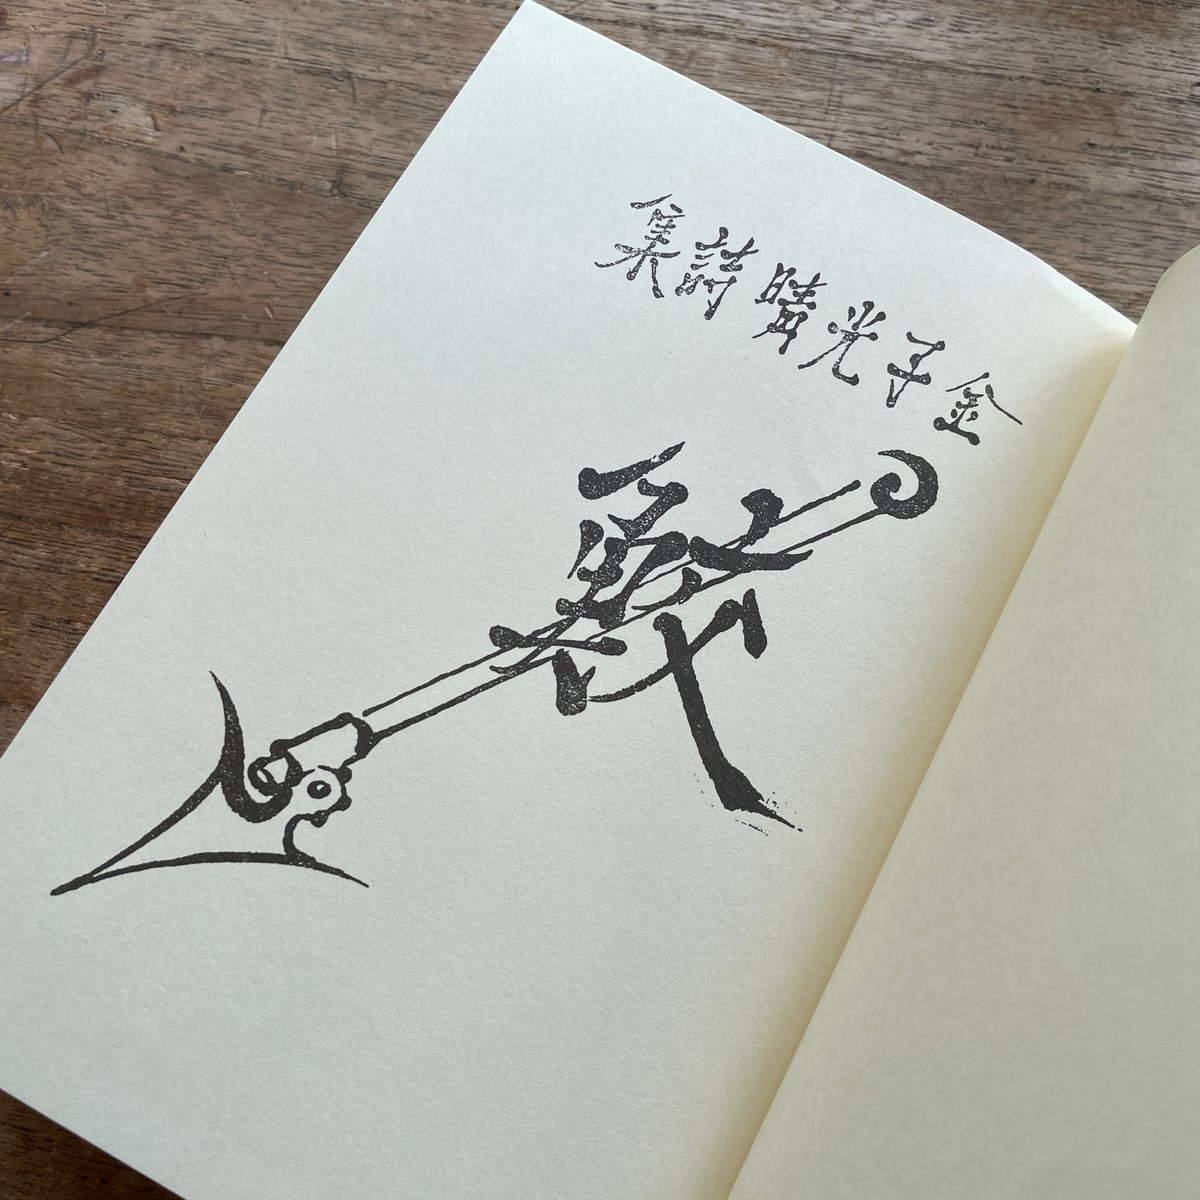 金子光晴詩集
鮫